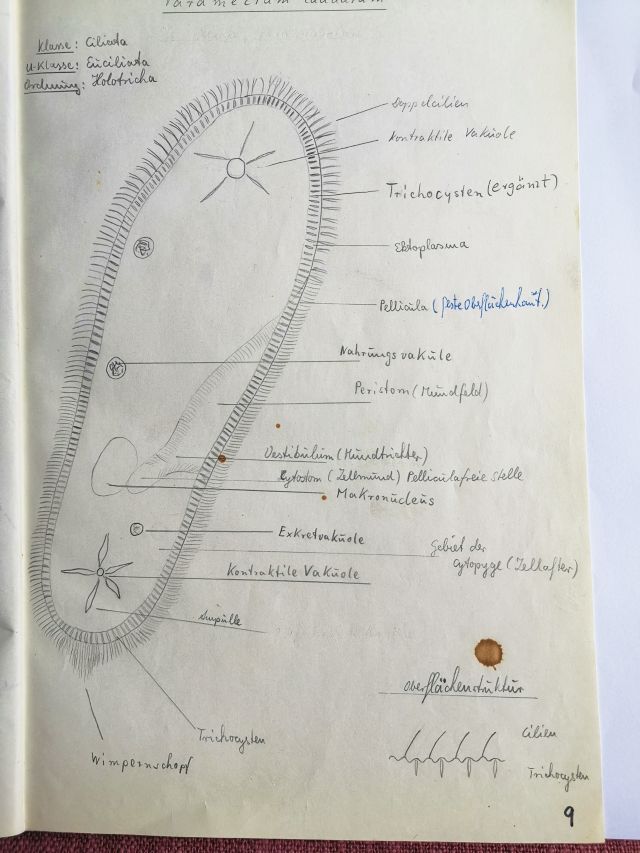 Paramecium caudatum
Klasse: Ciliata
U-Klasse: Euciliata
Ordnung: Holotricha
Doppelcilien
Kontraktile Vakuole
Trichocysten (ergänzt)
Ektoplasma
Pellicula (feste Oberflächenhaut.)
Nahrungsvakuole
Peristom (Mundfeld)
Vestibulum (Mundtrichter)
Cytostom (Zellmund) Pelliculafreie Stelle
Makronucleus
Exkretvakuole
Gebiet der
Cytopyge (Zellafter)
Kontraktile Vakuole
Ampulle
Oberflächenstruktur
Trichocysten
Wimpernschopf
Cilien
Trichocysten
9